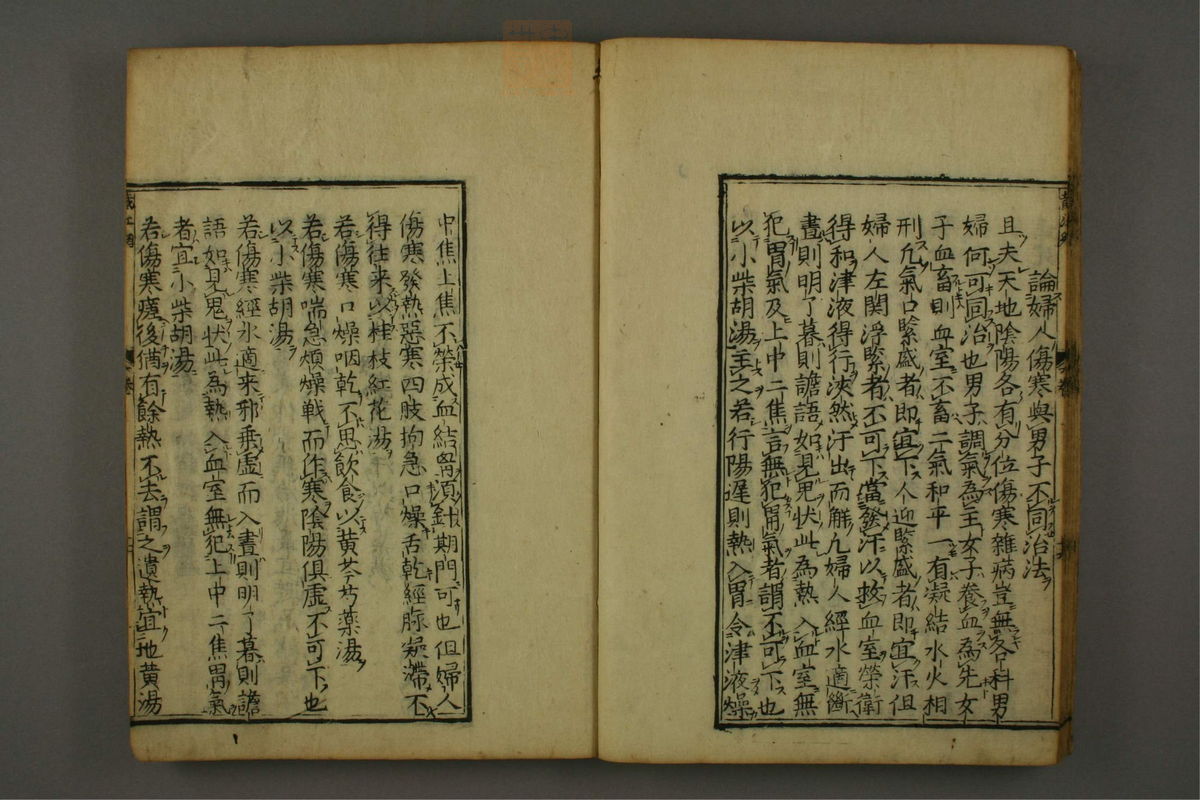 論婦人傷寒與男子不同治法
且夫天地陰陽各有分位傷寒雜病豈無各科男
婦何可同治也男子調氣為主女子養血為先女
子血畜則血室不畜二氣和平一有凝結水火相
刑九氣口緊盛者即宜下人迎緊盛者即宜汗但
婦人左関浮緊者不可下當發汗以救血室榮衛
得和津液得行浹然汗出而解凡婦人經水適斷
晝則明了暮則譫語如見鬼状此為熱入血室無
犯胃氣及上中二焦言無犯胃氣者謂不可下也
以小柴胡湯主之若行陽遲則熱入胃令津液燥
中焦上焦不榮成血結胷須針期門可也但婦人
傷寒發熱惡寒四肢拘急口燥舌乾經脉凝滯不
得往来以桂枝紅花湯
若傷寒口燥咽乾不思飲食以黄芩芍藥湯
若傷寒喘急煩燥戦而作寒陰陽俱虚不可下也
以小柴胡湯
若傷寒經水適来邪乗虚而入晝則明了暮則譫
語如見鬼状此為熱入血室無犯上中二焦胃氣
者宜小柴胡湯
若傷寒瘥後猶有餘熱不去謂之遺熱宜地黄湯